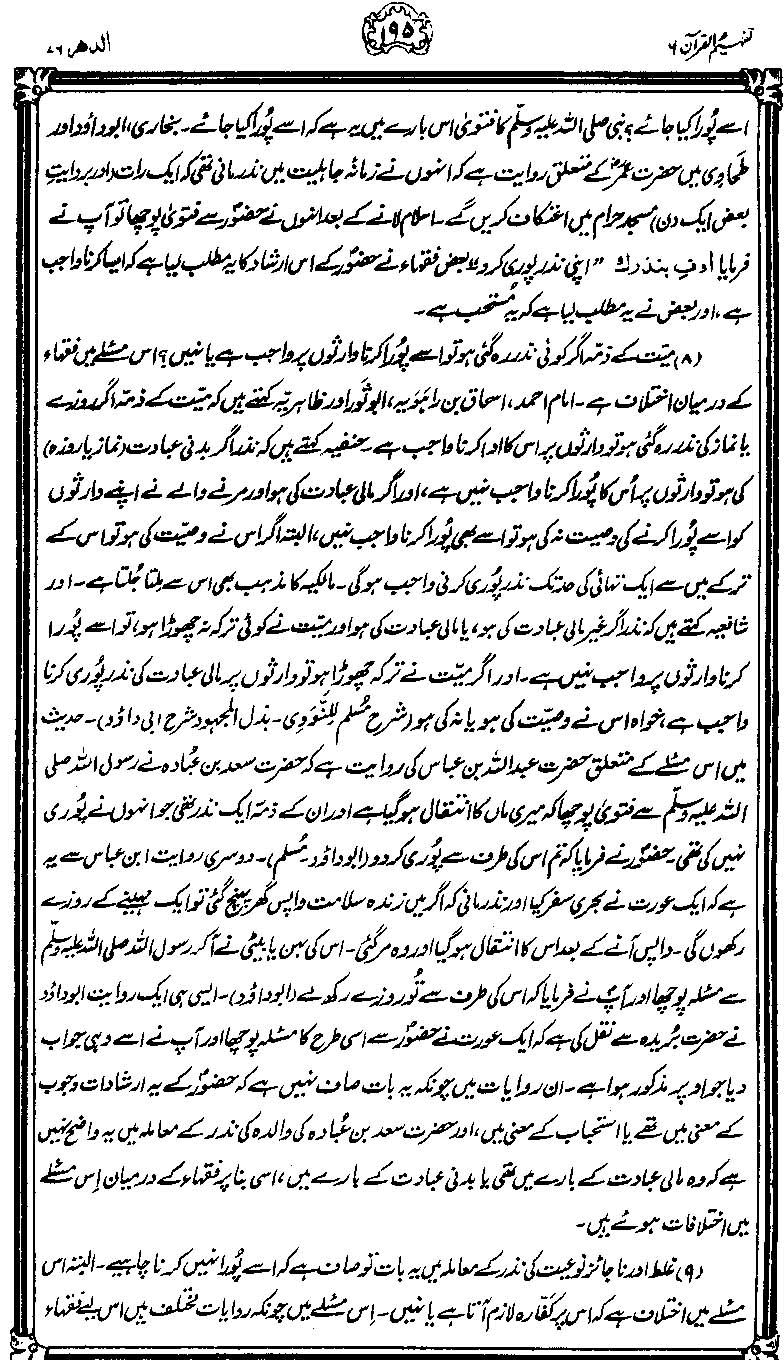 تفہیم القرآن ۶
۱۹۵
الدھر ۷۶
اسے پُورا کیا جائے؟ نبی صلی اللہ علیہ وسلّم کا فتویٰ اس بارے میں یہ ہے کہ اسے پُورا کیا جائے۔ بخاری، ابوداؤد اور
طحاوی میں حضرت عمرؓ کے متعلق روایت ہے کہ انہوں نے زمانۂ جاہلیت میں نذر مانی تھی کہ ایک رات (اور بروایتِ
بعض ایک دن) مسجد حرام میں اعتکاف کریں گے۔ اسلام لانے کے بعد انہوں نے حضورؐ سے فتویٰ پوچھا تو آپ نے
فرمایا اَوفِ بنذرك "اپنی نذر پوری کرو" بعض فقہاء نے حضورؐ کے اس ارشاد کا یہ مطلب لیا ہے کہ ایسا کرنا واجب
ہے، اور بعض نے یہ مطلب لیا ہے کہ یہ مُستحب ہے۔
(۸) میّت کے ذمّہ اگر کوئی نذر رہ گئی ہو تو اسے پُورا کرنا وارثوں پر واجب ہے یا نہیں؟ اس مسئلے میں فقہاء
کے درمیان اختلاف ہے۔ امام احمد، اسحاق بن راہَوَیہ، ابو ثَور اور ظاہریّہ کہتے ہیں کہ میّت کے ذمّہ اگر روزے
یا نماز کی نذر رہ گئی ہو تو وارثوں پر اس کا ادا کرنا واجب ہے۔ حنفیہ کہتے ہیں کہ نذر اگر بدنی عبادت (نماز یا روزہ)
کی ہو تو وارثوں پر اُس کا پُورا کرنا واجب نہیں ہے، اور اگر مالی عبادت کی ہو اور مرنے والے نے اپنے وارثوں
کو اسے پُورا کرنے کی وصیت نہ کی ہو تو اسے بھی پُورا کرنا واجب نہیں، البتہ اگر اس نے وصیّت کی ہو تو اس کے
ترکے میں سے ایک تہائی کی حد تک نذر پُوری کرنی واجب ہوگی۔ مالکیہ کا مذہب بھی اس سے ملتا جُلتا ہے۔ اور
شافعیہ کہتے ہیں کہ نذر اگر غیر مالی عبادت کی ہو، یا مالی عبادت کی ہو اور میّت نے کوئی ترکہ نہ چھوڑا ہو، تو اسے پُورا
کرنا وارثوں پر واجب نہیں ہے۔ اور اگر میّت نے ترکہ چھوڑا ہو تو وارثوں پر مالی عبادت کی نذر پُوری کرنا
واجب ہے، خواہ اس نے وصیّت کی ہو یا نہ کی ہو (شرح مُسلم لِلنَّوَوِی۔ بذل المجہود شرح ابی داؤد)۔ حدیث
میں اس مسئلے کے متعلق حضرت عبداللہ بن عباس کی روایت ہے کہ حضرت سعد بن عُبادہ نے رسول اللہ صلی
اللہ علیہ وسلّم سے فتویٰ پوچھا کہ میری ماں کا انتقال ہوگیا ہے اور ان کے ذمّہ ایک نذر تھی جو انہوں نے پُوری
نہیں کی تھی۔ حضورؐ نے فرمایا کہ تم اس کی طرف سے پُوری کردو (ابوداؤد۔ مُسلم)۔ دوسری روایت ابن عباس سے یہ
ہے کہ ایک عورت نے بحری سفر کیا اور نذر مانی کہ اگر میں زندہ سلامت واپس گھر پہنچ گئی تو ایک مہینے کے روزے
رکھوں گی۔ واپس آنے کے بعد اس کا انتقال ہوگیا اور وہ مرگئی۔ اس کی بہن یا بیٹی نے آکر رسول اللہ صلی اللہ علیہ وسلّم
سے مسئلہ پوچھا اور آپؐ نے فرمایا کہ اس کی طرف سے تُو روزے رکھ لے (ابوداؤد)۔ ایسی ہی ایک روایت ابوداؤد
نے حضرت بُریدہ سے نقل کی ہے کہ ایک عورت نے حضورؐ سے اسی طرح کا مسئلہ پوچھا اور آپ نے اسے وہی جواب
دیا جو اوپر مذکور ہوا ہے۔ ان روایات میں چونکہ یہ بات صاف نہیں ہے کہ حضورؐ کے یہ ارشادات وجوب
کے معنی میں تھے یا استحباب کے معنی میں، اور حضرت سعد بن عُبادہ کی والدہ کی نذر کے معاملہ میں یہ واضح نہیں
ہے کہ وہ مالی عبادت کے بارے میں تھی یا بدنی عبادت کے بارے میں، اسی بنا پر فقہاء کے درمیان اِس مسئلے
میں اختلافات ہوئے ہیں۔
(۹) غلط اور ناجائز نوعیت کی نذر کے معاملہ میں یہ بات تو صاف ہے کہ اسے پُورا نہیں کرنا چاہیے۔ البتہ اس
مسئلے میں اختلاف ہے کہ اس پر کفّارہ لازم آتا ہے یا نہیں۔ اِس مسئلے میں چونکہ روایات مختلف ہیں اس لیے فقہاء